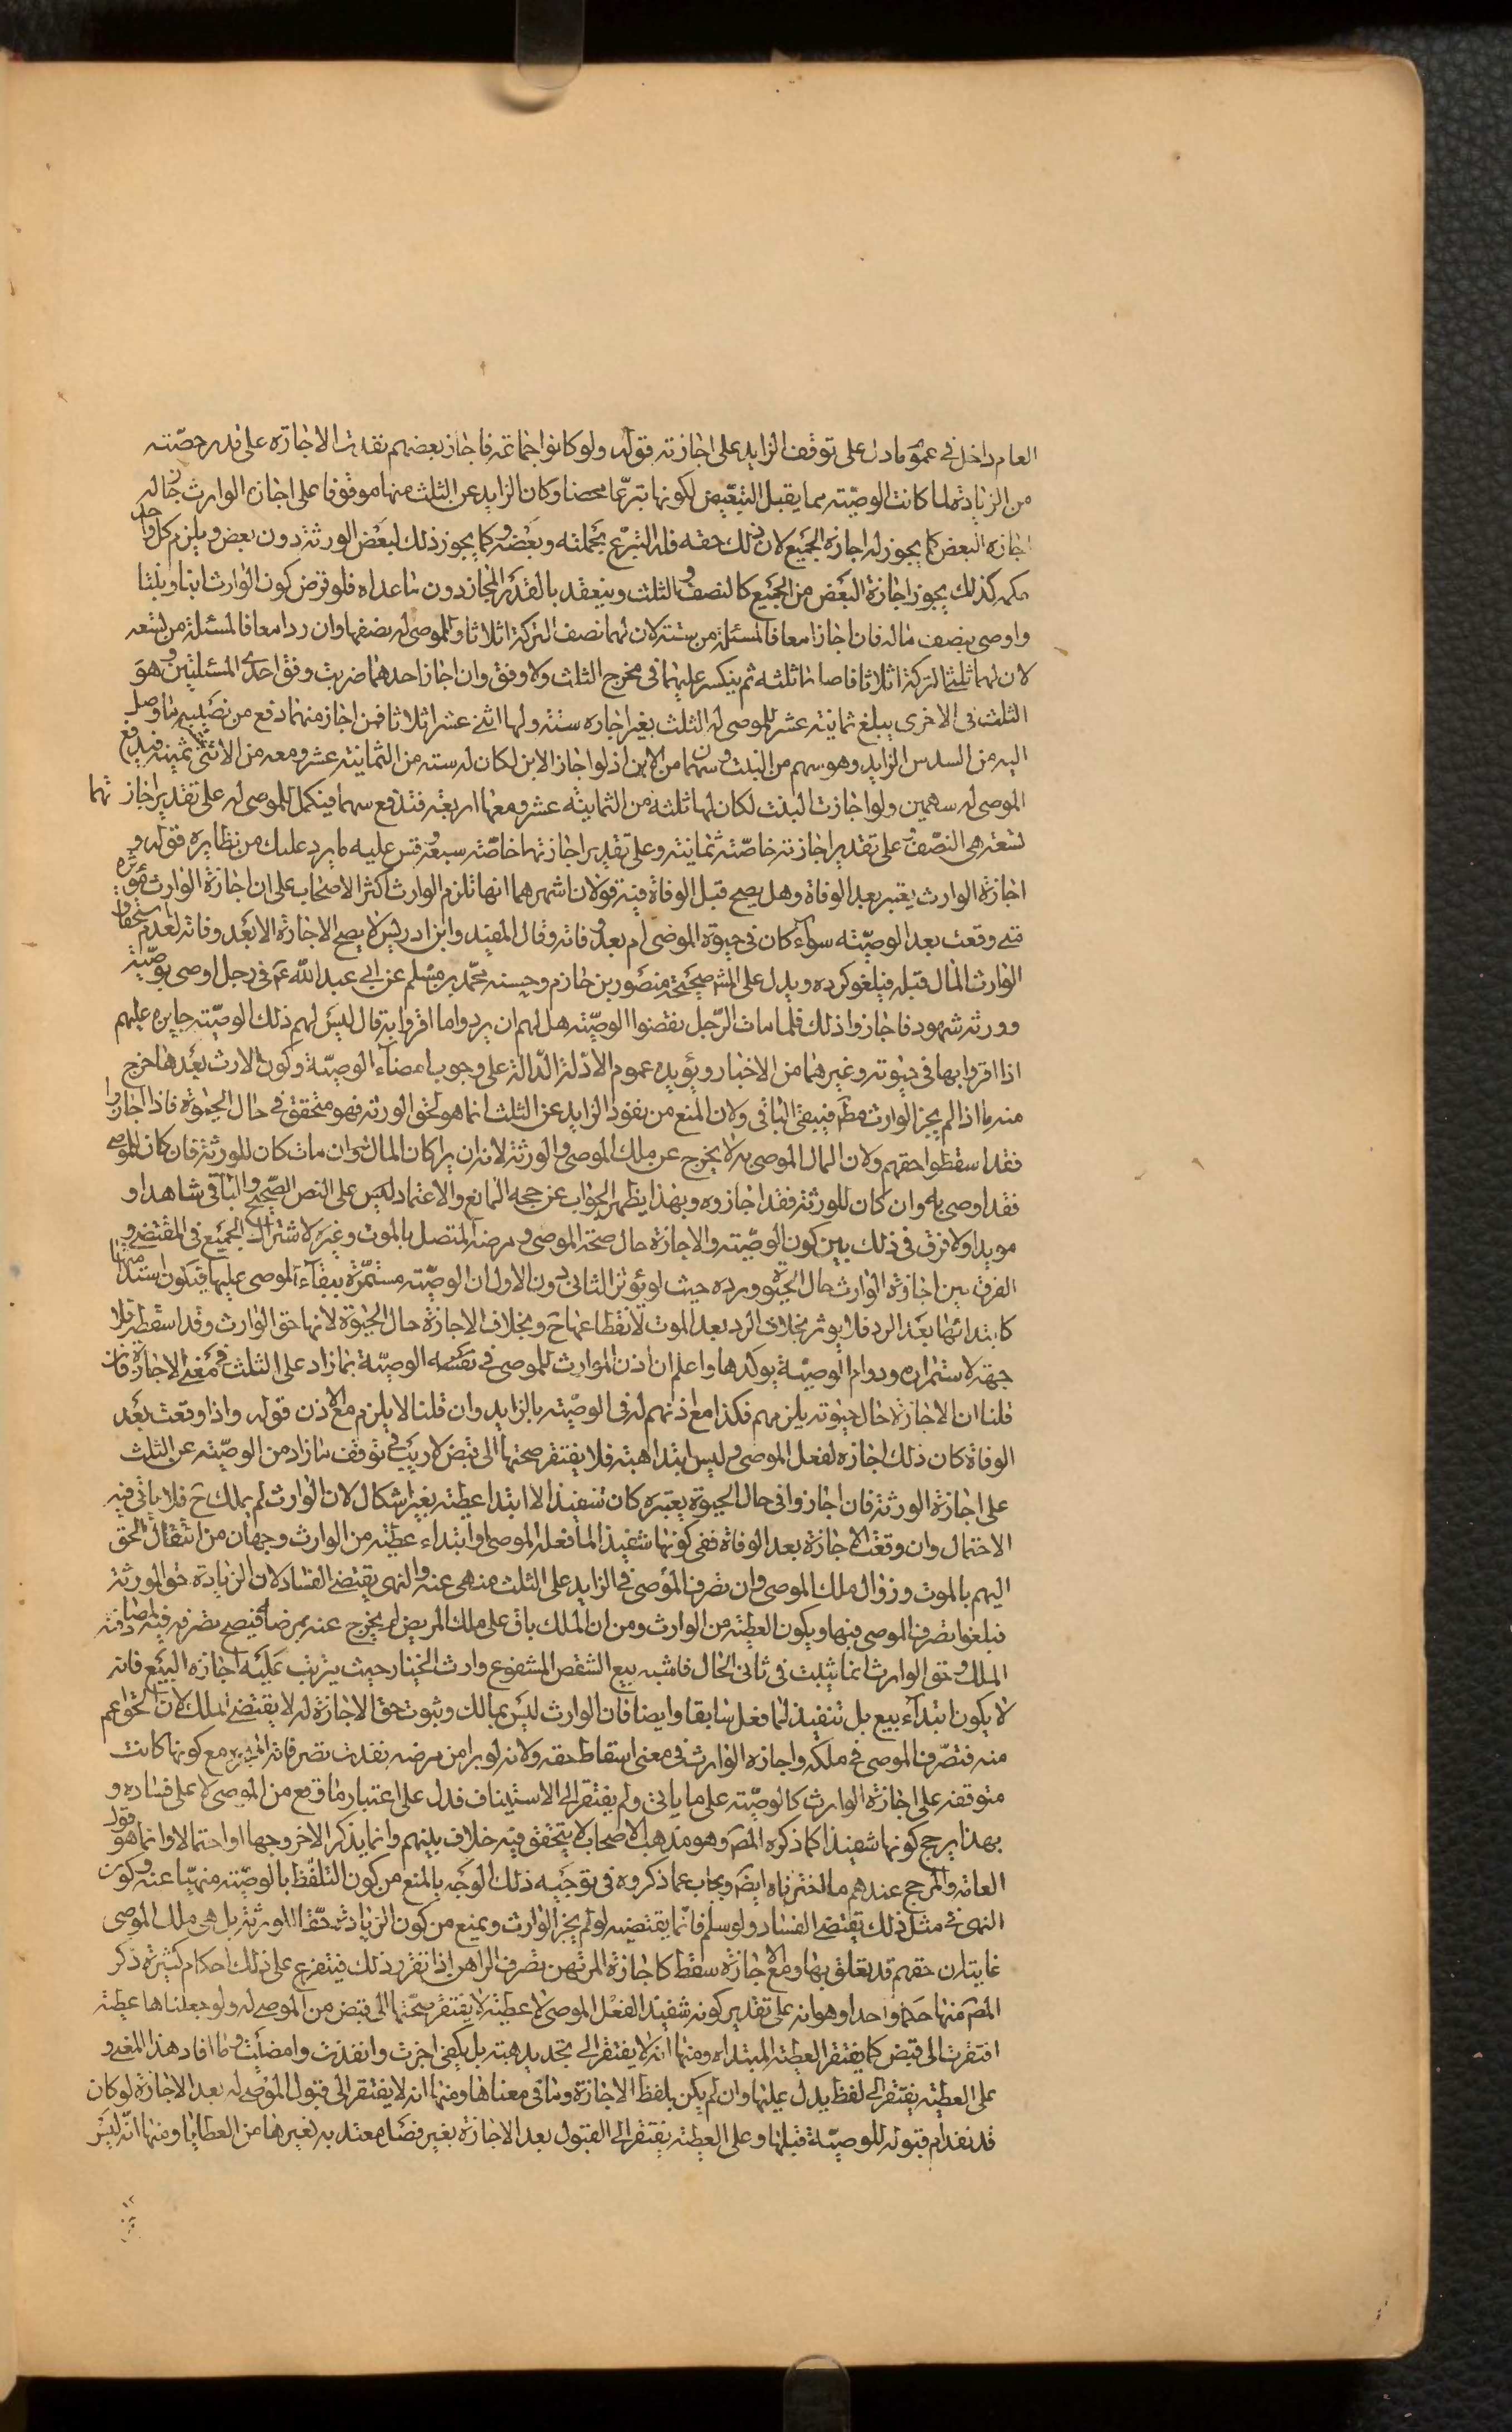 العام داخل في عموم ما دل على توقف الزايد على اجازته قوله ولو كانوا جماعة فاجاز بعضهم نفذت الاجازة على قدر حصّته
من الزيادة لما كانت الوصيّة مما يقبل التبعّيض لكونها تبرّعا محضا وكان الزايد عن الثلث منها موقوفا على اجازة الوارث جاز له
اجازة البعض كما يجوز له اجازة الجميع لان ذلك حقه فله التبرّع بجملته وبعضه وكما يجوز ذلك لبعض الورثة دون بعض ويلزم كل واحد
حكمه كذلك يجوز اجازة البعض من الجميع كالنصف والثلث وينعقد بالقدر المجاز دون ما عداه فلو فرض كون الوارث ابنا وبنتا
واوصى بنصف ماله فان اجازا معا فالمسئلة من ستة لان لهما نصف التركة اثلاثا وللموصى له نصفها وان ردا معا فالمسئلة من تسعه
لان لهما ثلثا التركة اثلاثا فاصلها ثلثه ثم ينكسر عليهما في مخرج الثلث ولا وفق وان اجاز احدهما ضربت وفق احدى المسئلتين وهو
الثلث في الاخرى يبلغ ثمانية عشر للموصى له الثلث بغير اجازه ستة ولها اثنى عشر اثلاثا فمن اجاز منهما دفع من نصيبه ما وصل
اليه من السدس الزايد وهو سهم من البنت وسهمان من الابن اذ لو اجاز الابن لكان له ستة من الثمانية عشر ومعه من الاثنى ثمنيه فيدفع
الموصى له سهمين ولو اجازت البنت لكان لها ثلثة من الثمانيه عشر ومعها اربعة فتدفع سهما فيكمل للموصى له على تقدير اجازتهما
تسعة هى النصف وعلى تقدير اجازته خاصّة ثمانية وعلى تقدير اجازتها خاصّة سبعة وقس عليه ما يرد عليك من نظايره قوله و
اجازة الوارث يعتبر بعد الوفاة وهل يصح قبل الوفاة فيه قولان اشهرهما انها تلزم الوارث اكثر الاصحاب على ان اجازة الوارث مؤثره
متى وقعت بعد الوصيّه سواء كان في حيوة الموصى ام بعد وفاته وقال المفيد وابن ادريس لا يصح الاجازة الا بعد وفاته لعدم استحقاق
الوارث المال قبله فيلغو كرده ويدل على المش صحيحة منصور بن حازم وحسنه محمّد بن مسلم عن ابى عبد الله عم في رجل اوصى بوصيّة
وورثه شهود فاجازوا ذلك فلما مات الرّجل نقضوا الوصيّه هل لهم ان يردوا ما اقروا به قال ليس لهم ذلك الوصيّه جايزه عليهم
اذا اقروا بها في حيوته وغيرهما من الاخبار ويؤيده عموم الادلة الدّالة على وجوب امضاء الوصيّة وكون الارث بعدها خرج
منه ما اذا لم يجز الوارث مطم فيبقى الباقى ولان المنع من نفوذ الزايد عن الثلث انما هو لحق الورثه فهو متحقق في حال الحيوة فاذا اجازوا
فقد اسقطوا حقهم ولان المال الموصى به لا يخرج عن ملك الموصى والورثة لانه ان برا كان المال له وان مات كان للورثة فان كان للموصى
فقد اوصى به وان كان للورثة فقد اجازوه وبهذا يظهر الجواب عن حجه المانع والاعتماد ليس على النص الصّحيح والباقى شاهدا و
مويدا ولا فرق في ذلك بين كون الوصيّه والاجازة حال صحة الموصى ومرضه المتصل بالموت وغيره لاشتراك الجميع في المقتضى و
الفرق بين اجازة الوارث حال الحيوة ورده حيث لم يؤثر الثانى دون الاول ان الوصيّه مستمّرة ببقاء الموصى عليها فيكون استدامتها
كابتدائها بعد الرد فلا يوثر بخلاف الرد بعد الموت لانقطاعها ح وبخلاف الاجازة حال الحيوة لانها حق الوارث وقد اسقطه فلا
جهة لاستمراره ودوام الوصيّة يوكدها واعلم ان اذن الوارث للموصى في نفسه الوصيّة بما زاد على الثلث في معنى الاجازة فان
قلنا ان الاجازة حال حيوته يلزمهم فكذا مع اذنهم له في الوصيّه بالزايد وان قلنا لا يلزم مع الاذن قوله واذا وقعت بعد
الوفاة كان ذلك اجازه لفعل الموصى وليس ابتدا هبة فلا يفتقر صحتها الى قبض لا ريب في توقف ما زاد من الوصيّه عن الثلث
على اجازة الورثة فان اجازوا في حال الحيوة يعتبره كان تنفيذا لا ابتدا عطية بغير اشكال لان الوارث لم يملك ح فلا ياتى فيه
الاحتمال وان وقعت الاجازة بعد الوفاة ففى كونها تنفيذا لما فعله الموصى او ابتداء عطيّه من الوارث وجهان من انتقال الحق
اليهم بالموت وزوال ملك الموصى وان تصرف الموصى في الزايد على الثلث منهى عنه والنهى يقتضى الفساد لان الزيادة حق الورثة
فيلغو تصرف الموصى فيها ويكون العطيّة من الوارث ومن ان الملك باق على ملك المريض لم يخرج عنه بمرضه فيصح تصرفه فيه لمصادفته
الملك وحق الوارث انما يثبت في ثانى الحال فاشبه بيع الشقص المشفوع وارث الخيار حيث يترتب عليه اجازه البيع فانه
لا يكون ابتداء بيع بل تنفيذ لما فعل سابقا وايضا فان الوارث ليس بمالك وثبوت حق الاجازة له لا يقتضى الملك لان الحق اعم
منه فتصّرف الموصى في ملكه واجازه الوارث في معنى اسقاط حقه ولانه لو برا من مرضه نفذت تصرفاته المنجزه مع كونها كانت
متوقفه على اجازة الوارث كالوصيّه على ما ياتى ولم يفتقر الى الاستيناف فدل على اعتبار ما وقع من الموصى لا على فساده و
بهذا يرجح كونها تنفيذا كما ذكره المص وهو مذهب الاصحاب لا يتحقق فيه خلاف بينهم وانما يذكر الاخر وجها او احتمالا وانما هو قول
العامة والمرجح عندهم ما اخترناه ايض ويجاب عما ذكروه في توجيه ذلك الوجه بالمنع من كون التلفّظ بالوصيّة منهيّا عنه وكون
النهى في مثل ذلك يقتضى الفساد ولو سلم فانما يقتضيه لو لم يجز الوارث ويمنع من كون الزيادة حقّا للورثة بل هى ملك الموصى
غايته ان حقهم قد تعلق بها ومع الاجازة سقط كاجازة المرتهن تصرف الراهن اذا تقرر ذلك فيتفرع على ذلك احكام كثيرة ذكر
المص منها حكما واحدا وهو انه على تقدير كونه تنفيذ الفعل الموصى لا عطيّة لا يفتقر صحّتها الى قبض من الموصى له ولو جعلناها عطية
افتقرت الى قبض كما يفتقر العطية المبتداه ومنها انه لا يفتقر الى تجديد هبته بل يكفى اجزت وانفذت وامضيت وما افاد هذا المعنى و
على العطيّه يفتقر الى لفظ يدل عليها وان لم يكن بلفظ الاجازة وما في معناها ومنها انه لا يفتقر الى قبول الموصى له بعد الاجازة لو كان
قد تقدم قبوله للوصيّة قبلها وعلى العطية يفتقر الى القبول بعد الاجازة بغير فصل معتد به لغيرها من العطايا ومنها انّه ليس